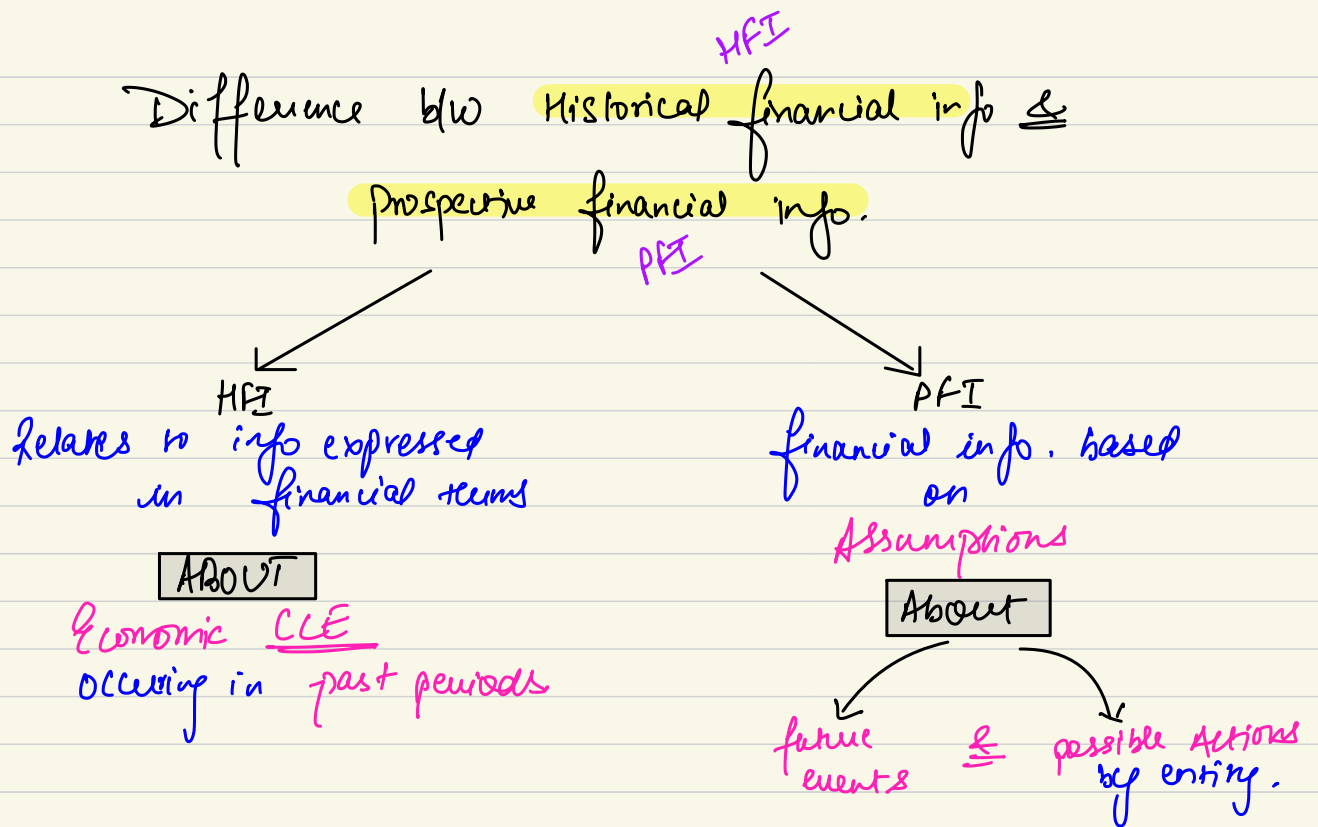 HFI
Difference b/w Historical financial info &
Prospective financial info.
PFI
HFI
Relates to info expressed
in financial terms
ABOUT
Economic CCE
occuring in past periods
PFI
financial info. based
on
Assumptions
About
future & possible Actions
events by entity.